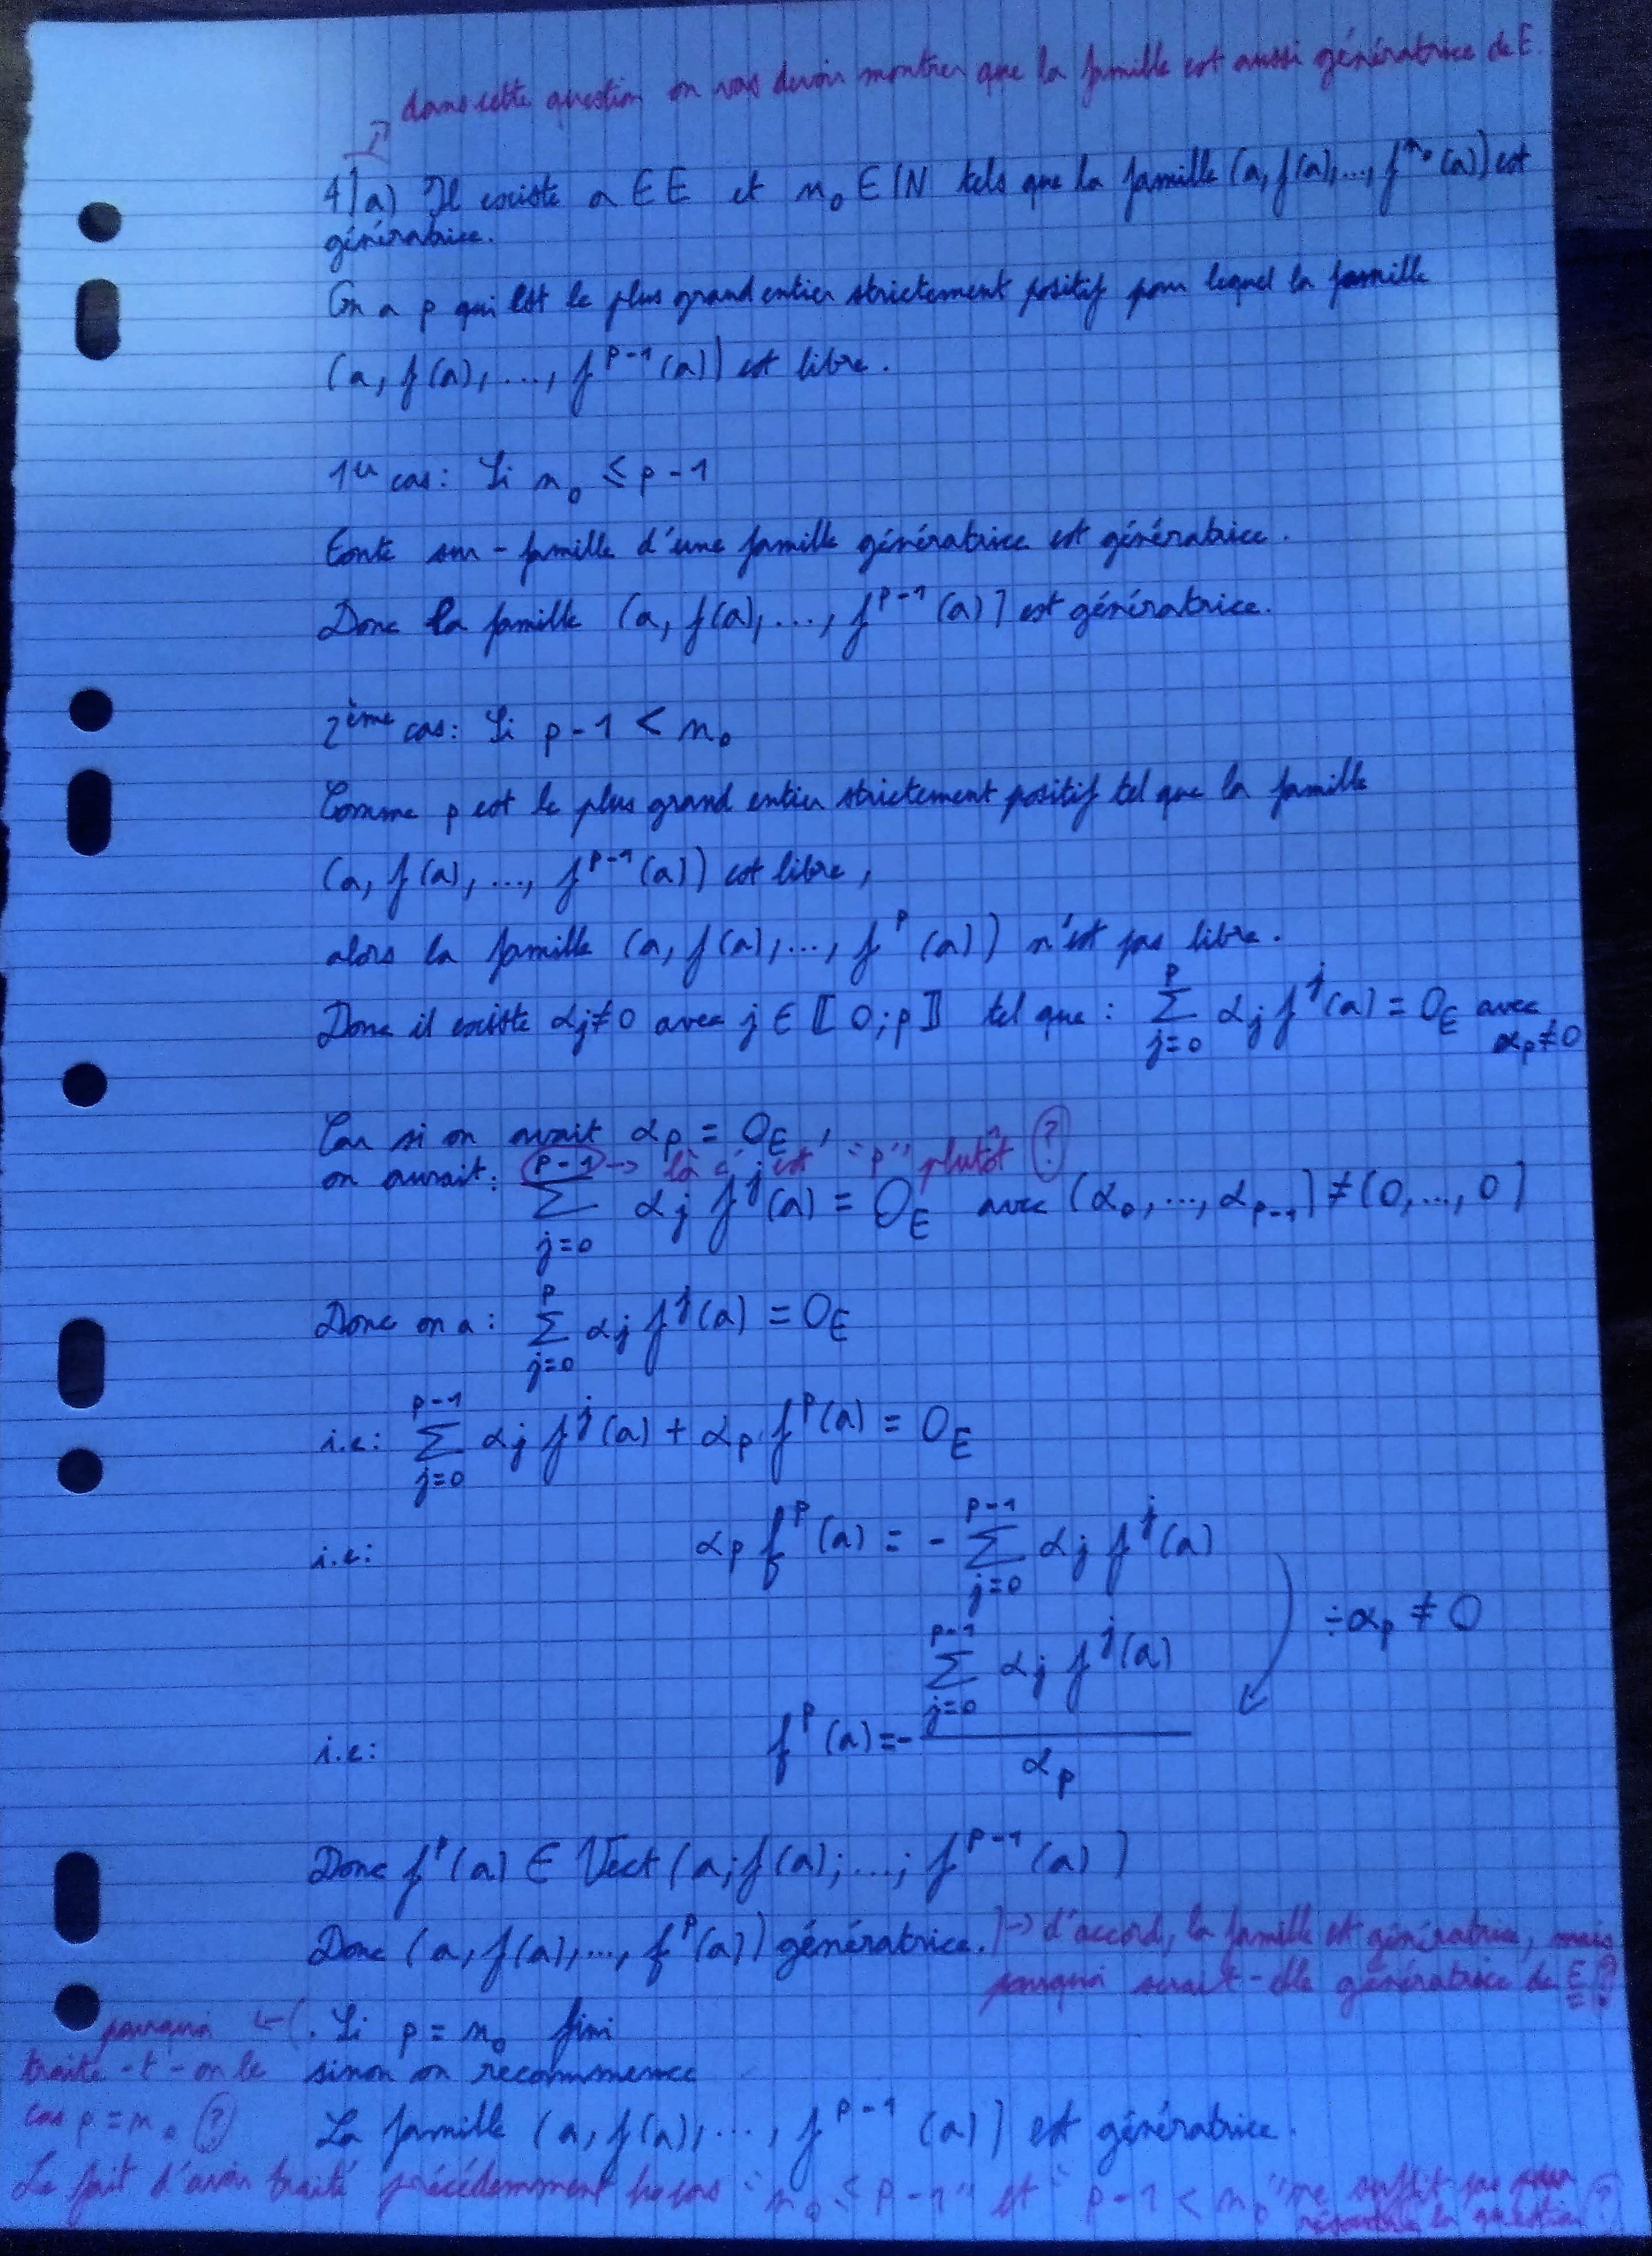 dans cette question on vas devoir montrer que la famille est aussi génératrice de E.
4) a) Il existe a ∈ E et n₀ ∈ ℕ tels que la famille (a, f(a), ..., f^n₀(a)) est
génératrice.
On a p qui est le plus grand entier strictement positif pour lequel la famille
(a, f(a), ..., f^{p-1}(a)) est libre.
1er cas : Si n₀ ≤ p-1
Toute sur-famille d'une famille génératrice est génératrice.
Donc la famille (a, f(a), ..., f^{p-1}(a)) est génératrice.
2ème cas : Si p-1 < n₀
Comme p est le plus grand entier strictement positif tel que la famille
(a, f(a), ..., f^{p-1}(a)) est libre,
alors la famille (a, f(a), ..., f^p(a)) n'est pas libre.
Donc il existe αj≠0 avec j ∈ ⟦0;p⟧ tel que : Σ_{j=0}^{p} αj f^j(a) = 0_E avec αp≠0
Car si on avait αp = 0_E,
p-1 → là c'est "p" plutôt ?
on aurait : Σ_{j=0}^{p-1} αj f^j(a) = 0_E avec (α₀, ..., α_{p-1}) ≠ (0, ..., 0)
Donc on a : Σ_{j=0}^{p} αj f^j(a) = 0_E
i.e : Σ_{j=0}^{p-1} αj f^j(a) + αp f^p(a) = 0_E
i.e : αp f^p(a) = - Σ_{j=0}^{p-1} αj f^j(a)
÷αp ≠ 0
i.e : f^p(a) = - (Σ_{j=0}^{p-1} αj f^j(a)) / αp
Donc f^p(a) ∈ Vect(a; f(a); ...; f^{p-1}(a))
Donc (a, f(a), ..., f^p(a)) génératrice. → d'accord, la famille est génératrice, mais
pourquoi serait-elle génératrice de E ?
. Si p = n₀ fini
sinon on recommence
pourquoi
traite-t-on le
cas p = n₀ ?
La famille (a, f(a), ..., f^{p-1}(a)) est génératrice.
Le fait d'avoir traité précédemment les cas "n₀ ≤ p-1" et "p-1 < n₀" ne suffit pas pour
résoudre la question ?